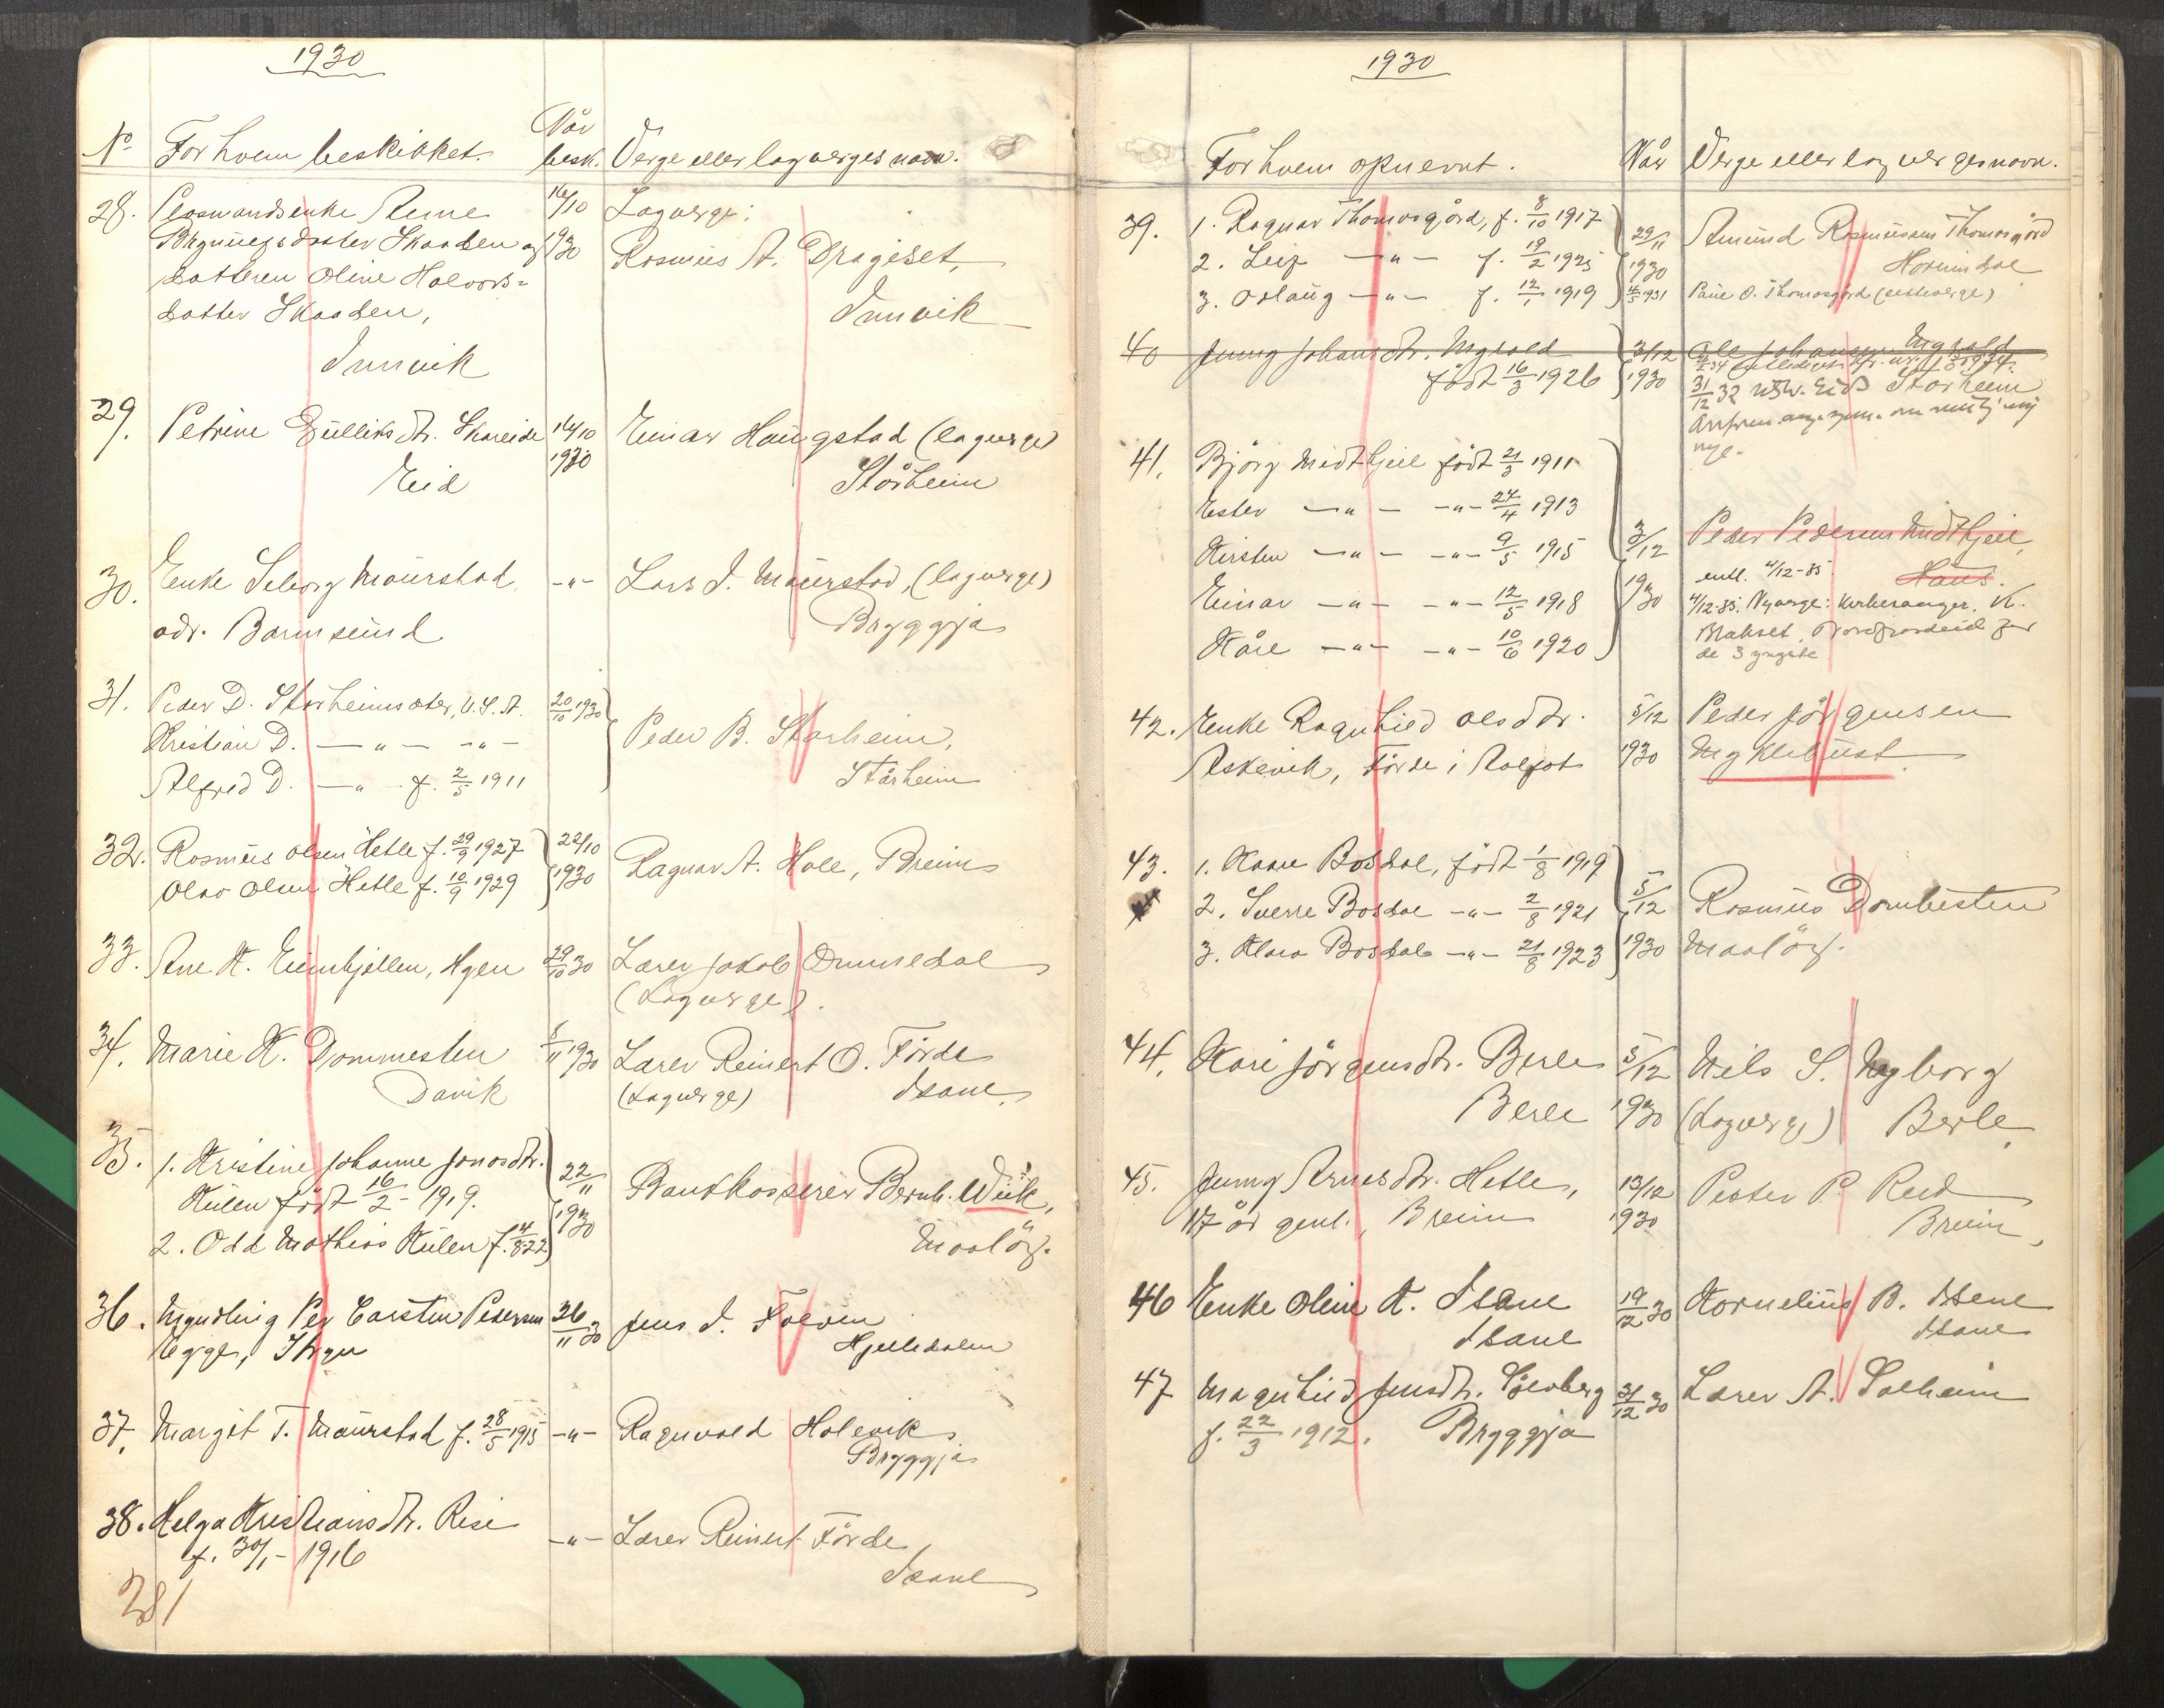 1930
No
For hvem beskikket.
Når
besk.
Verge eller lagverges navn.
28.
Plasmandsenke Anne
16/10
Lagverge:
Brynjulfsdatter Skaaden og
1930
Rasmus A. Drageset,
datteren Oline Halvors=
datter Skaaden,
Innvik
Innvik
29.
Petrine Gulliksdtr. Skareide
16/10
Einar Haugstad (lagverge)
1930
Eid
Stårheim
30.
Enke Maurstad
-"-
Lars J. Maurstad, (lagverge)
adr. Barmsund
Bryggja
31.
Peder D. Storheimsæter, U.S.A.
20/10 1930
Kristian D. -"- -"-
Peder B. Starheim,
Alfred D. -"- f. 2/5 1911
Stårheim
32.
Rasmus Olsen Hetle f. 29/9 1927
22/10
Olav Olsen Hetle f. 10/9 1929
1930
Ragnar A. Hole, Breim
33.
Ane A. Hgen
29/10 30
Lærer Jakob Ommedal
(Lagverge).
34.
Marie K. Dommesten
5/11 1930
Lærer Reinert O. Förde
Davik
(Lagverge)
Isane.
35.
1. Kristine Johanne Jonasdtr.
22/11
Bankkasserer Bernh. Wiik,
Hülen født 16/2 - 1919.
1930
2. Odd Mathias Hülen f. 4/8-22
Maaløy.
36.
Myndling Per Carsten Pedersen
26/11 30
Jens J. Folven
Egge, Stryn
Hjelledalen
37.
Margit T. Maurstad f. 28/5 1915
-"-
Ragnvald Holevik
Bryggja
38.
Helga Kristiansdtr. Rise
-"-
Lærer Reinert Förde
f. 30/1 - 1916
Isane
281
1930
For hvem opnevnt.
Når
Verge eller lagverges navn.
39.
1. Ragnar Thomasgård, f. 8/10 1917
29/11
Amund Rasmussen Thomasgård
2. Leif -"- f. 19/2 1925
1930
Hornindal
3. Oslaug -"- f. 12/1 1919
4/5 1931
Paul O. Thomasgård (setteverge)
40
Jenny Johansdtr. Myrold
31/12
Ole Johansen Myrold
født 16/3 1926
1930
31/12 32 Stårheim
nye.
41.
Bjørg Midthjell født 21/3 1911
Ester -"- -"- 27/4 1913
Kirsten -"- -"- 9/5 1915
3/12
Peder Pedersen Midthjell,
Einar -"- -"- 12/5 1918
1930
entl. 4/12-35.
Haus.
4/12-35. Ny verge: K.
Kåre -"- -"- 10/6 1920
Nordfjordeid for
de 3 yngste
42.
Enke Ragnhild Olsdtr.
5/12
Peder Jörgensen
Askevik, Förde i Aalfot
1930
Myklebust
43.
1. Kåre Bosdal, født 1/8 1919
2. Sverre Bosdal -"- 2/8 1921
5/12
Rasmus Dombesten
3. Klara Bosdal -"- 21/8 1923
1930
Maaløy.
44.
Kari Jörgensdtr. Berle
5/12
Nils S. Nyborg
Berle
1930
(Lagverge) Berle
45.
Jenny Arnesdtr. Hetle,
13/12
Peder P. Reed
17 år gml., Breim
1930
Breim
46
Enke Oline A. Isane
19/12 30
Kornelius B. Isene
Isane
Isane
47
Magnhild Jensdtr. Solvberg
31/12 30
Lærer A. Solheim
f. 22/3 1912. Bryggja